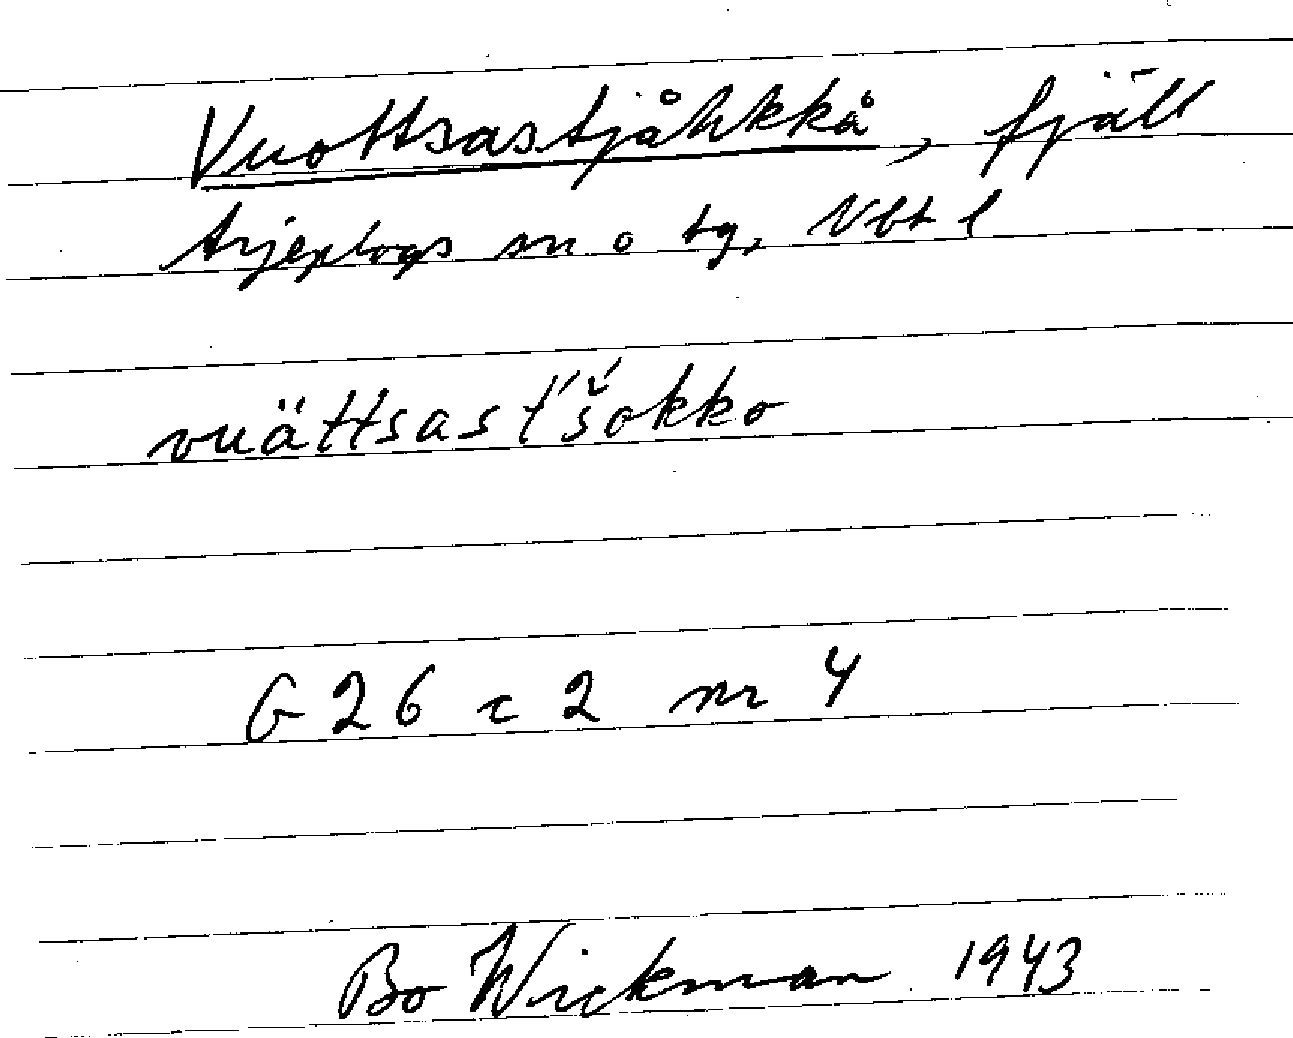 Vuottsastjåhkkå, fjäll
Arjeplogs sn o tg, Nbt l
vuättsast́š́okko
G 26 c 2 nr 4
Bo Wickman 1943